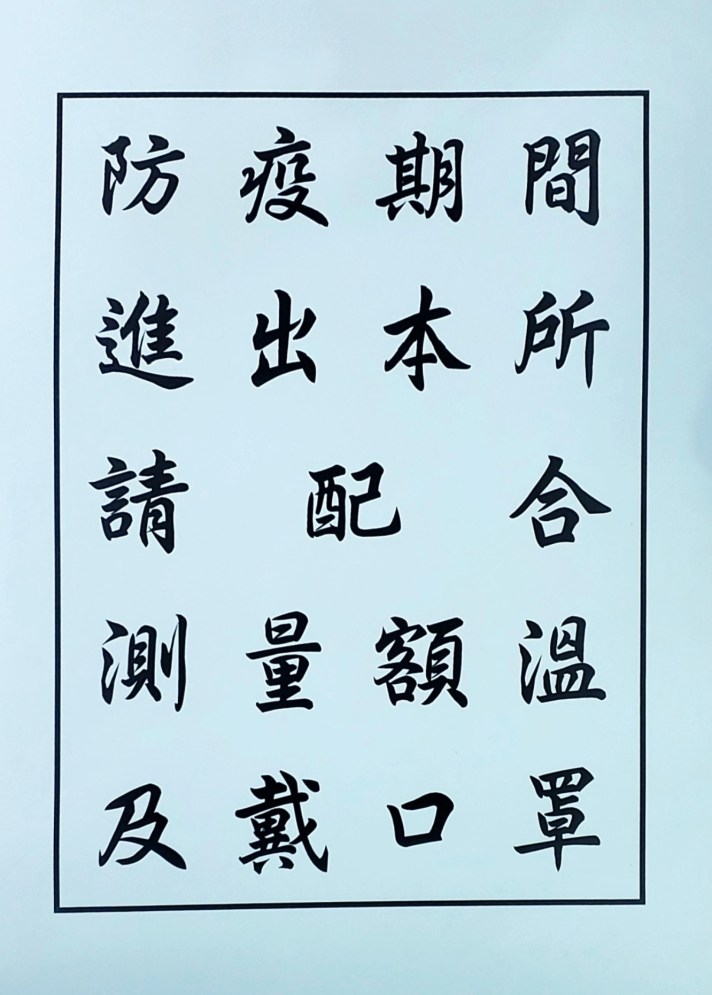 防疫期間
進出本所
請配合
測量額溫
及戴口罩